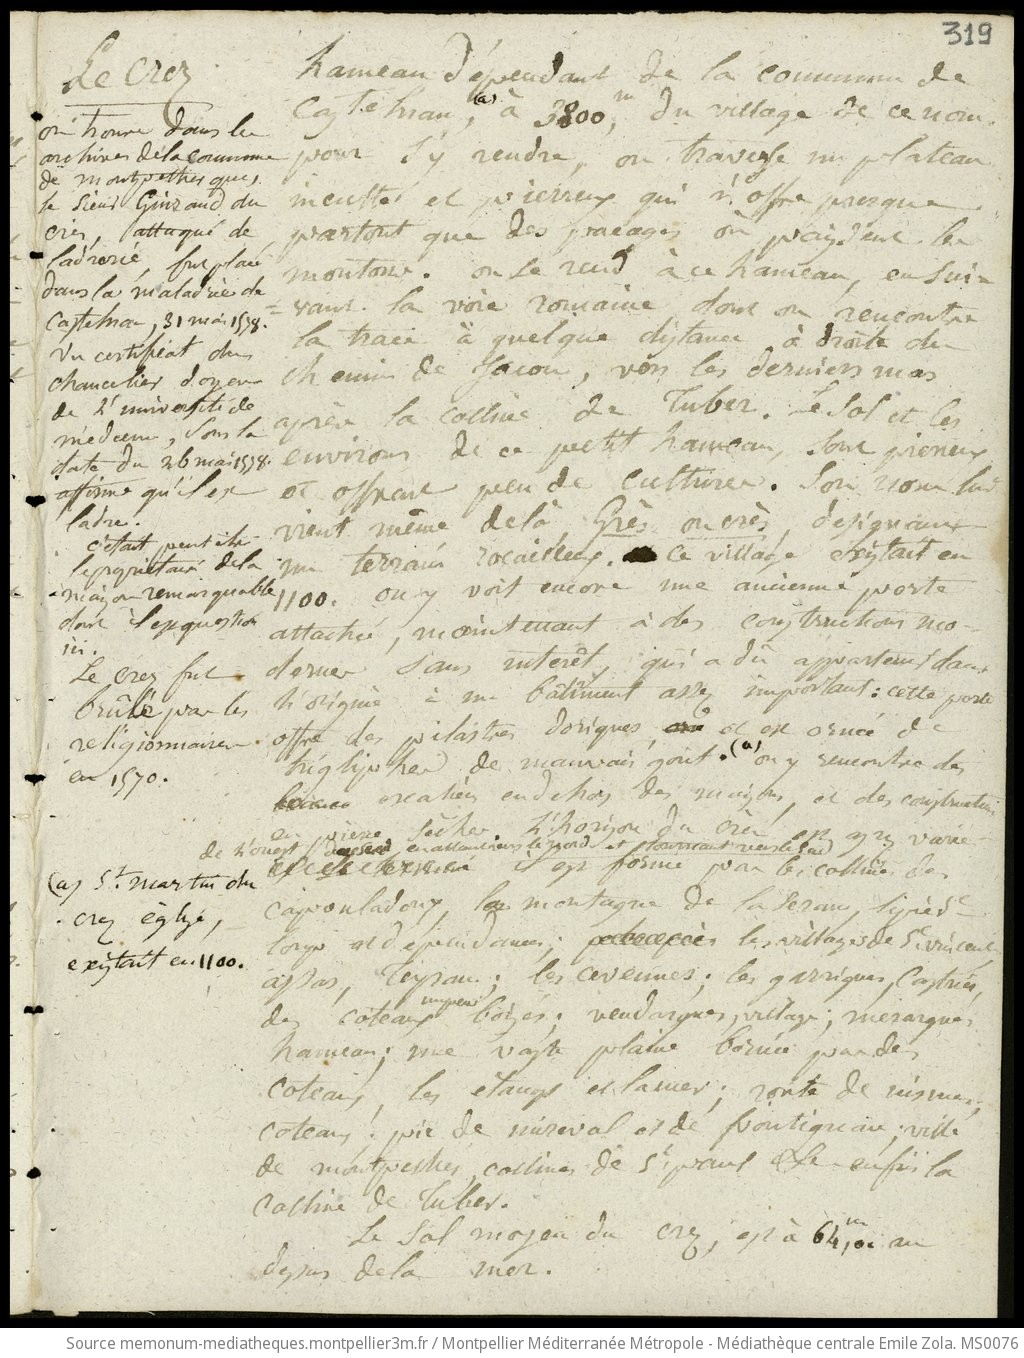 319
Le Crez
on trouve dans les
archives de la commune
de montpellier que,
le Sieur Giraud du
crès, attaqué de
ladrerie fut placé
dans la maladrie de
Castelnau, 31 mai 1578.
Un certificat du
chancelier doyen
de l'université de
médecine, sous la
date du 26 mai 1578.
affirme qu'il est
ladre.
c'était peut être
le propriétaire de la
maison remarquable
dont il est question
ici.
Le crez fut
brûlé par les
religionnaires
en 1570.
(a) St. martin du
crez église,
existait en 1100.
hameau dépendant de la commune de
Castelnau, (a) à 3800,m du village de ce nom.
pour s'y rendre, on traverse un plateau
inculte et pierreux qui n'offre presque
partout que des pacages où paissent les
moutons. on se rend à ce hameau, en sui-
vant la voie romaine dont on rencontre
la trace à quelque distance à droite du
chemin de Jacou, vers les derniers mas
après la colline de Tuber. Le sol et les
environs de ce petit hameau, sont pierreux
et offrent peu de cultures. Son nom lui
vient même de là, Grès ou crès, désignant
un terrain rocailleux. ce village existait en
1100. on y voit encore une ancienne porte
attachée, maintenant à des constructions mo-
dernes sans intérêt, qui a dû appartenir dans
l'origine à un bâtiment assez important: cette porte
offre des pilastres doriques et est ornée de
triglyphes de mauvais goût. (a) on y rencontre des
escaliers en dehors des maisons, et des constructions
en pierre sèche. L'horizon du crès est assez varié
de l'ouest en allant vers le nord et tournant vers le sud
il est formé par les collines des
capouladoux, la montagne de la Serane, St pied-
loup et dépendances; les villages de St vincent,
assas, Teyran; les cevennes; les garrigues, Castries,
des coteaux un peu boisés; vendargues, village; meirargues
hameau; une vaste plaine bornée par des
coteaux, les étangs et la mer; route de nismes;
coteaux; pic de mireval et de frontignan; ville
de montpellier, collines de St. paul &c enfin la
colline de Tuber.
Le sol moyen du crez, est à 64,m00 au
dessus de la mer.
Source memonum-mediatheques.montpellier3m.fr / Montpellier Méditerranée Métropole - Médiathèque centrale Emile Zola. MS0076